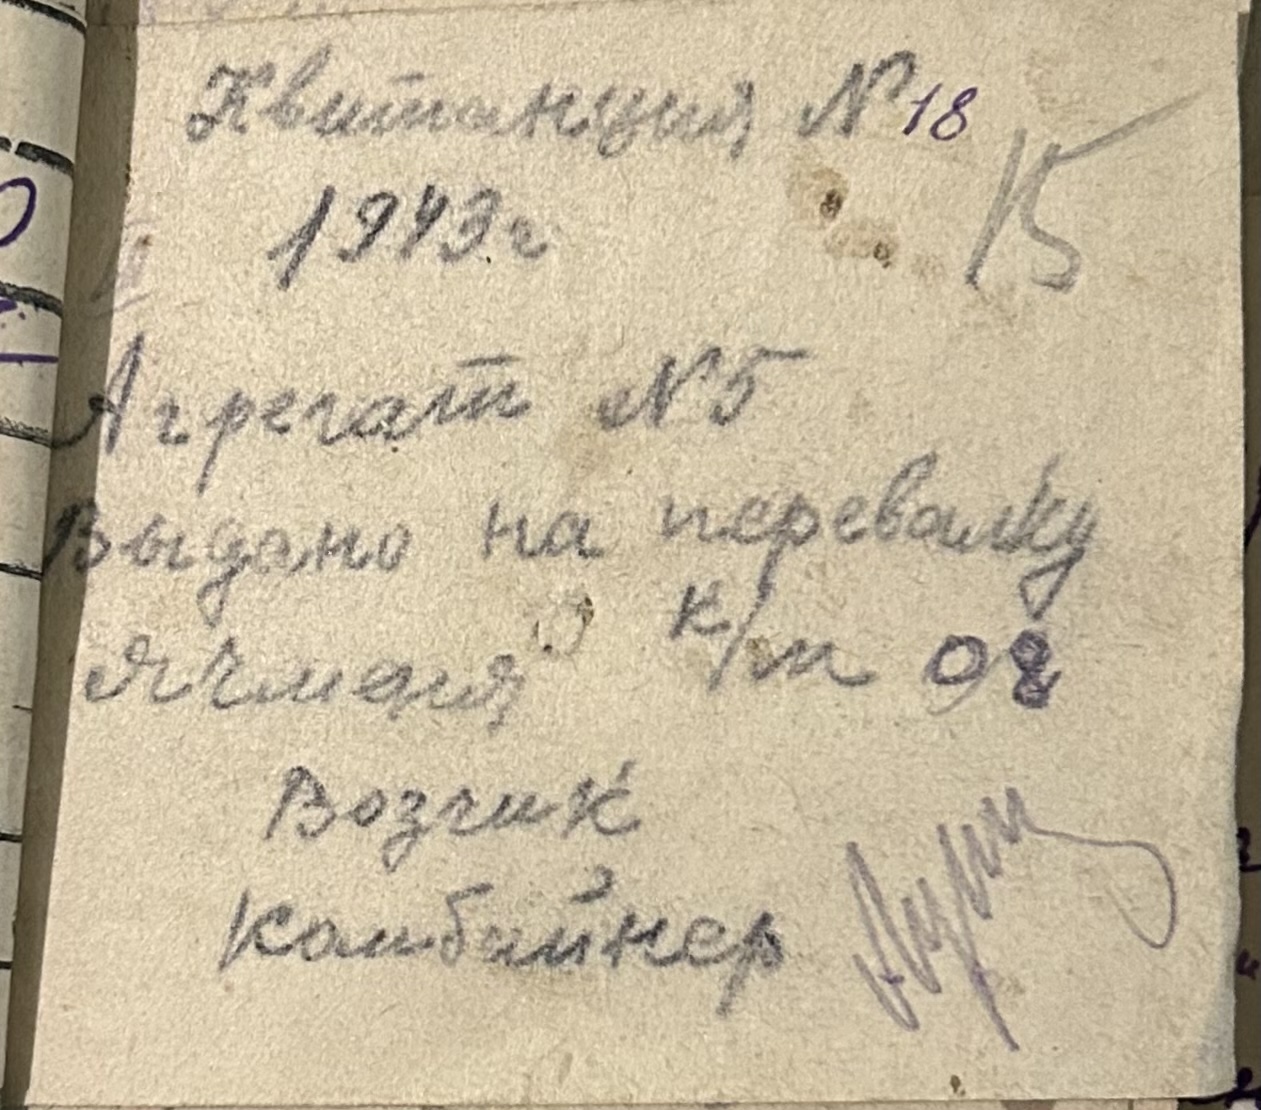 Квитанция № 18
1943г
15
Агрегат № 5
Выдано на перевалку
Ячменя к/т 08
Возчик
Комбайнер